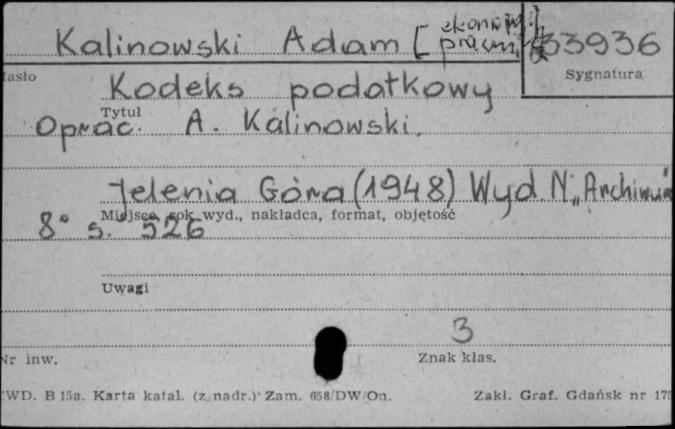 Kalinowski Adam [ekonomi
prawn
33936
asło
Sygnatura
Kodeks podatkowy
Tytuł
Oprac. A. Kalinowski.
Jelenia Góra (1948) Wyd. N. „Archiwum
Miejsce, rok wyd., nakładca, format, objętość
8° s. 526
Uwagi
3
Nr inw.
Znak klas.
WD. B 15a. Karta katal. (z nadr.) Zam. 658/DW/On.
Zakł. Graf. Gdańsk nr 175